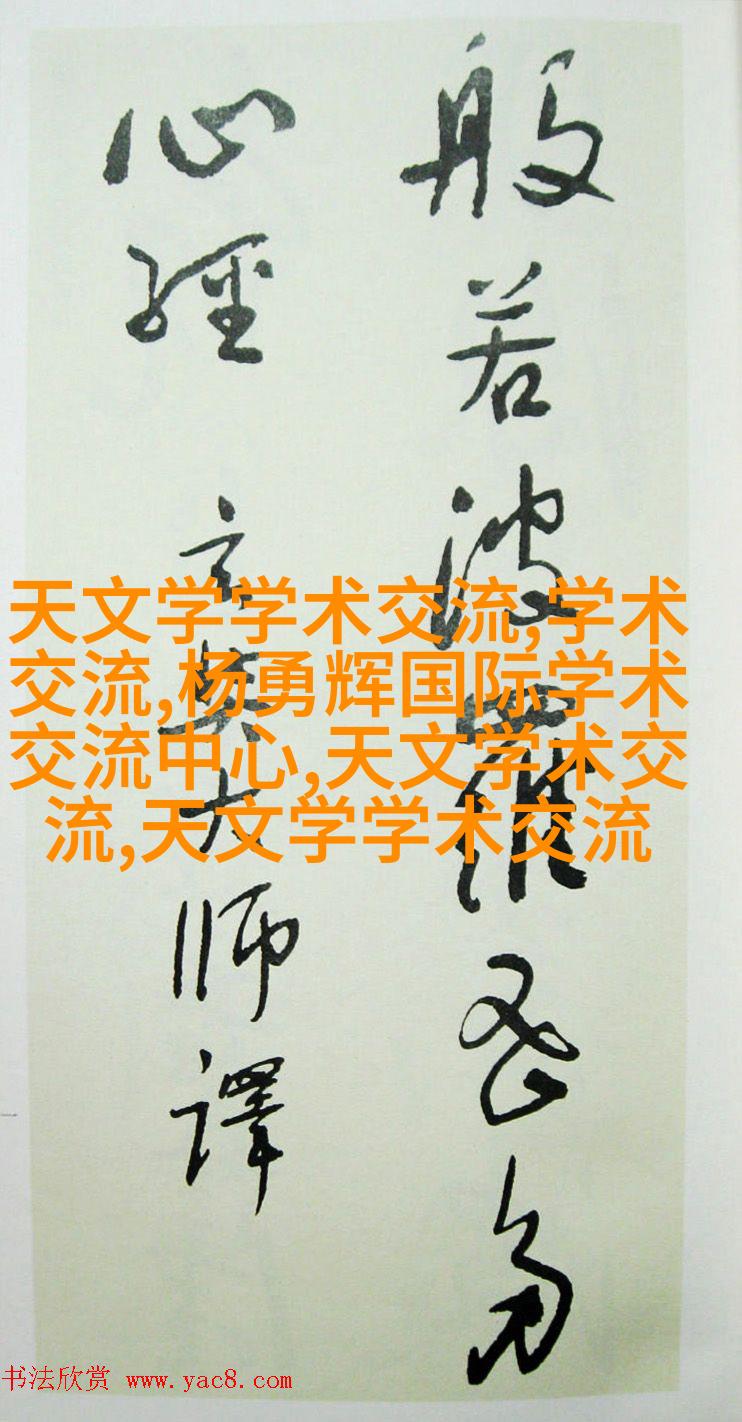 般若波羅蜜多
心經 玄奘大师譯
天文学学术交流,学术
交流,杨勇辉国际学术
交流中心,天文学术交
流,天文学学术交流
书法欣赏 www.yac8.com